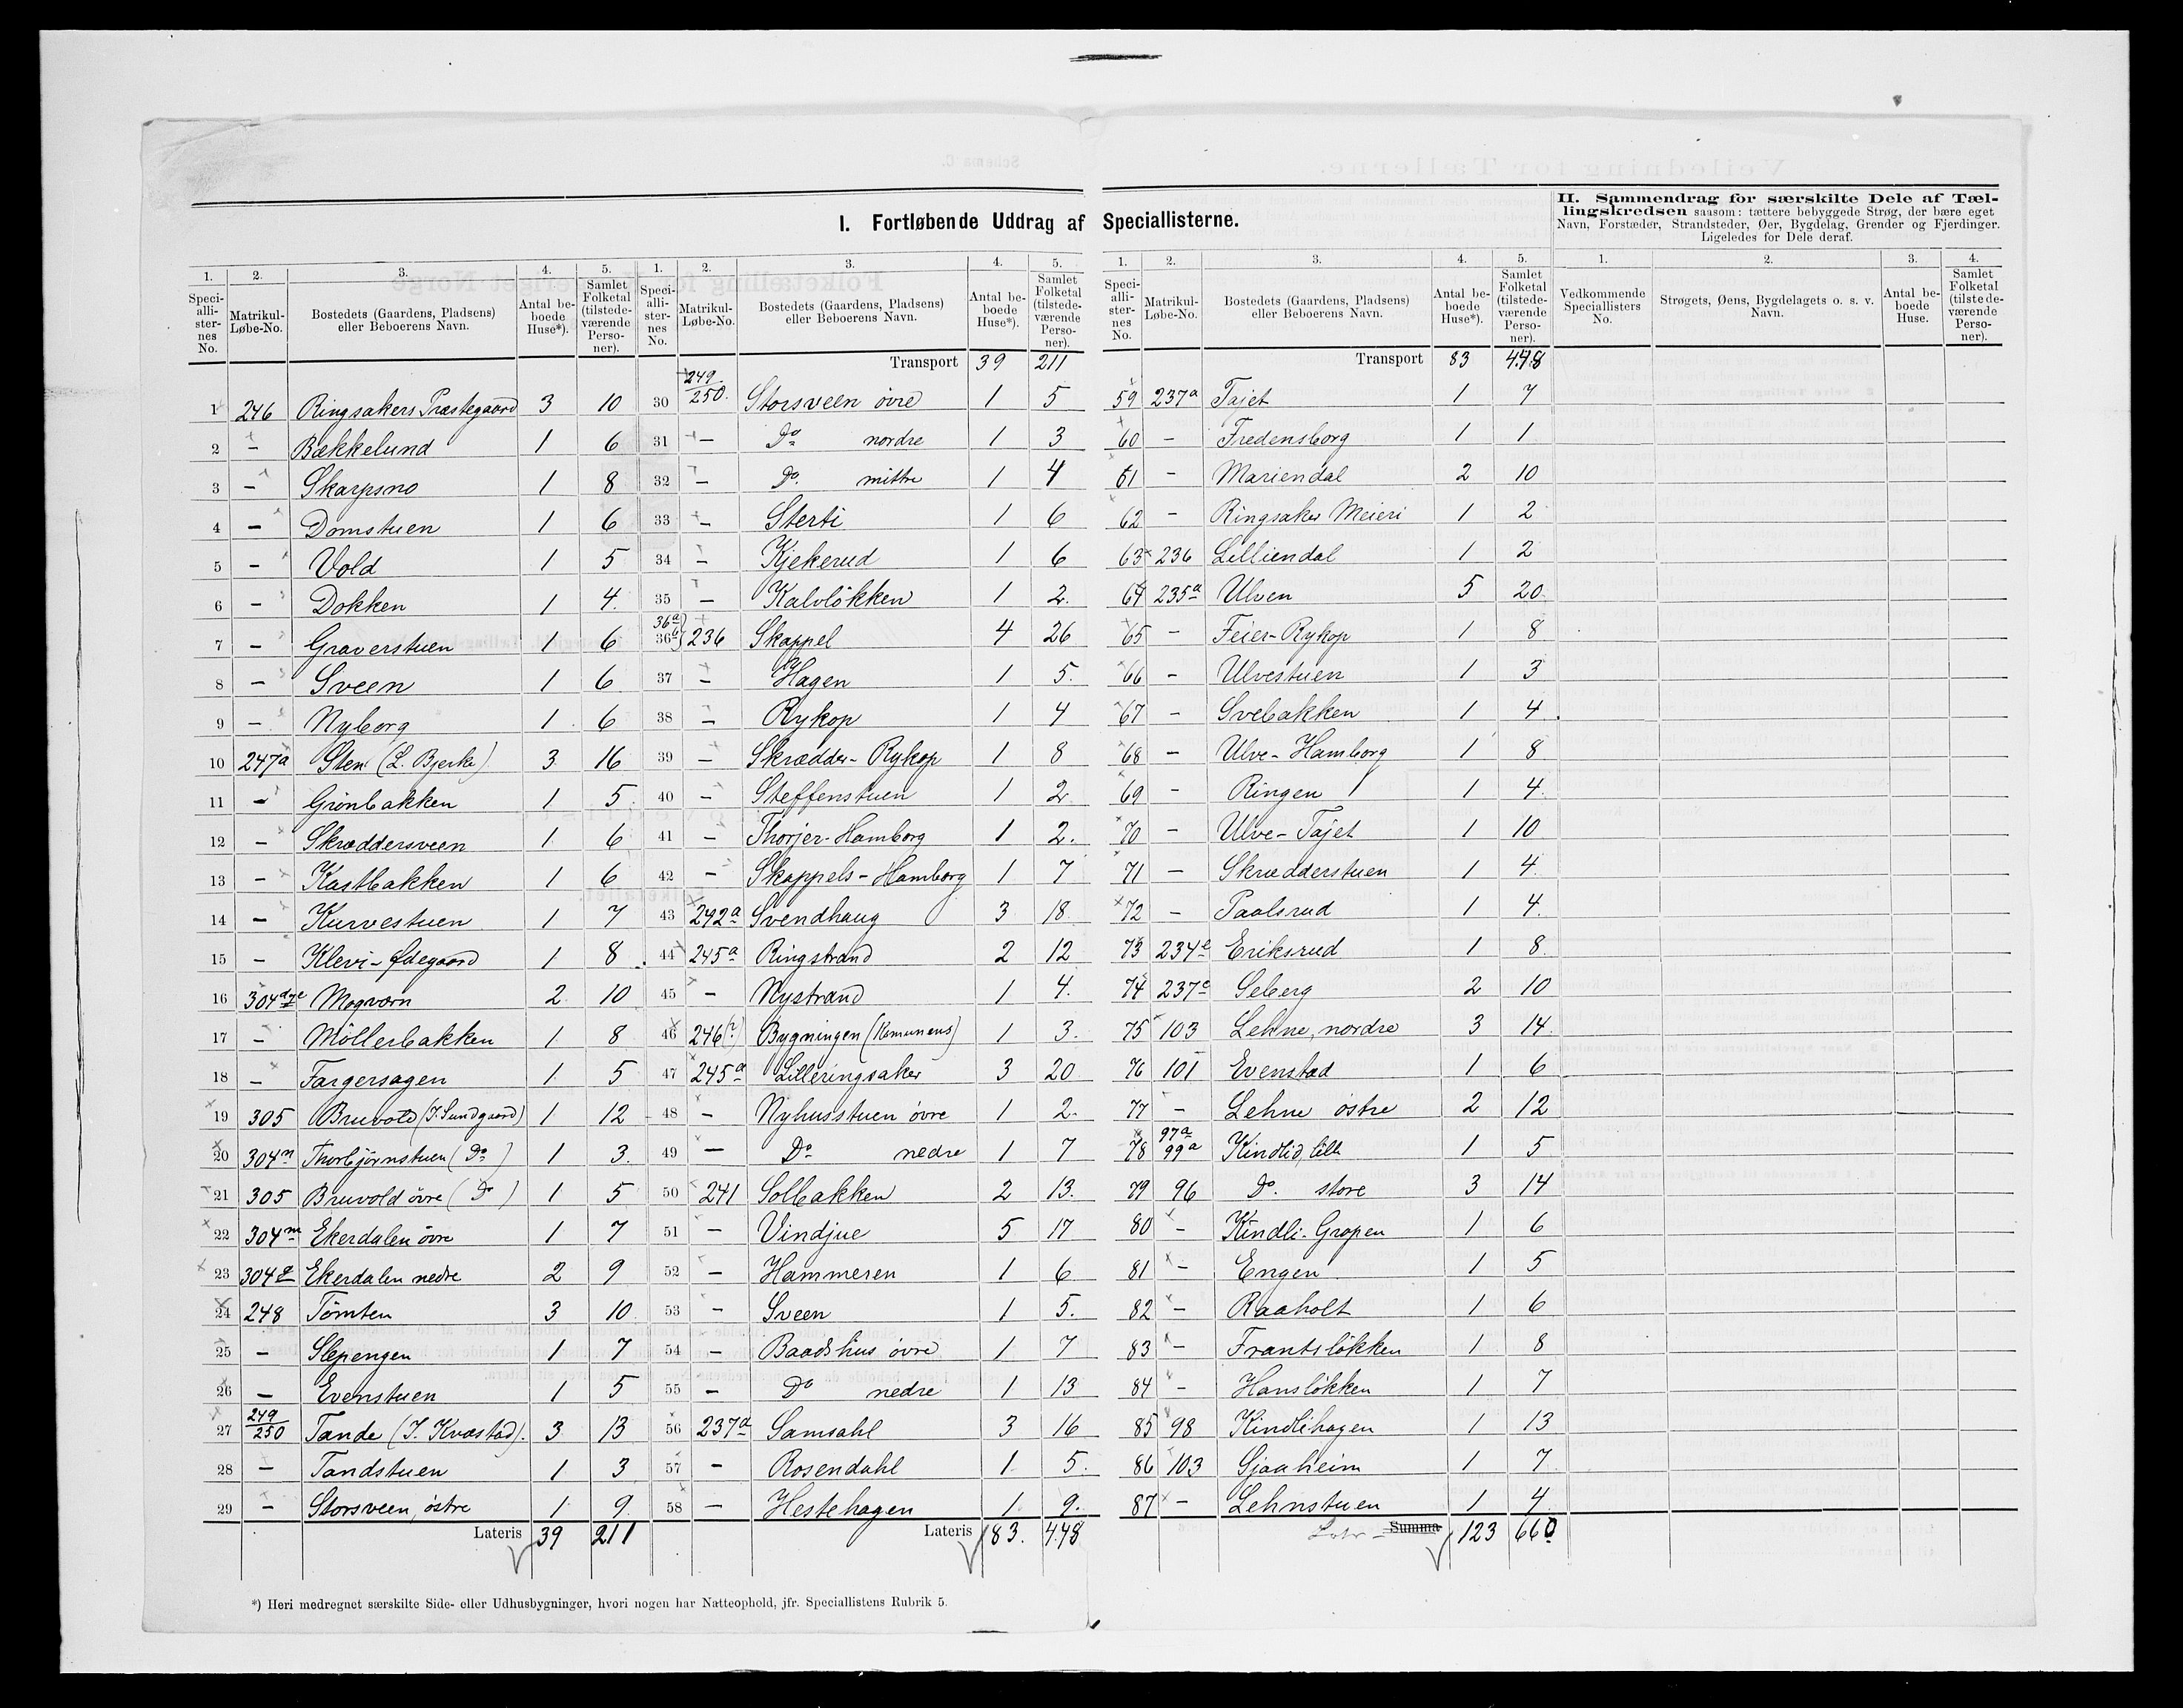 I. Fortløbende Uddrag af Speciallisterne.
II. Sammendrag for særskilte Dele af Tæl-
lingskredsen saasom: tættere bebyggede Strøg, der bære eget
Navn, Forstæder, Strandsteder, Øer, Bygdelag, Grender og Fjerdinger.
Ligeledes for Dele deraf.
1. 2. 3. 4. 5.
Speci-alli-ster-nes No. Matrikul-Løbe-No. Bostedets (Gaardens, Pladsens) eller Beboerens Navn. Antal be-boede Huse*). Samlet Folketal (tilstede-værende Perso-ner).
1 246 Ringsakers Præstegaard 3 10
2 - Bækkelund 1 6
3 - Skarpsno 1 8
4 - Domstuen 1 6
5 - Vold 1 5
6 - Dokken 1 4
7 - Graverstuen 1 6
8 - Sveen 1 6
9 - Nyborg 1 6
10 247a Sten (L. Bjerke) 3 16
11 - Grönbakken 1 5
12 - Skræddersveen 1 6
13 - Kastbakken 1 6
14 - Kurvestuen 1 7
15 - Klevi-Ødegaard 1 8
16 304d,e Mogvorn 2 10
17 - Möllerbakken 1 8
18 - Fargersagen 1 5
19 305 Bruvold (J. Sundgaard) 1 12
20 304n Thorbjörnstuen (Do) 1 3.
21 305 Bruvold övre (Do) 1 5
22 304m Ekerdalen övre 1 7
23 304 Ekerdalen nedre 2 9
24 248 Tömten 3 10
25 - Slepengen 1 7
26 - Evenstuen 1 5
27 249/250 Tande (J. Kvæstad). 3 13
28 - Tandstuen 1 3
29 - Storsveen, östre 1 9
Lateris 39 211
1. 2. 3. 4. 5.
Speci-alli-ster-nes No. Matrikul-Løbe-No. Bostedets (Gaardens, Pladsens) eller Beboerens Navn. Antal be-boede Huse*). Samlet Folketal (tilstede-værende Perso-ner).
Transport 39 211
30 249/250. Storsveen övre 1 5
31 - Do nordre 1 3
32 - Do. mittre 1 4
33 - Sterti 1 6
34 - Kjekerud 1 6
35 - Kalvlökken 1 2.
36a 36b 236 Skappel 4 26
37 - Hagen 1 5.
38 - Rykop 1 4
39 - Skrædder-Rykop 1 8
40 - Steffenstuen 1 2
41 - Thorjer-Hamborg 1 2.
42 - Skappels-Hamborg 1 7
43 242a Svendhaug 3 18
44 245a Ringstrand 2 12
45 - Nystrand 1 4.
46 246(?) Bygningen (Komunens) 1 3.
47 245a Lilleringsaker 3 20
48 - Nyhusstuen övre 1 2.
49 - Do nedre 1 7
50 241 Solbakken 2 13.
51 - Vindjue 5 17
52 - Hammeren 1 6
53 - Sveen 1 5.
54 - Baadshus övre 1 7
55 - Do nedre 1 13
56 237a Samsahl 3 16
57 - Rosendahl 1 5.
58 - Hestehagen 1 9.
Lateris 83. 448
1. 2. 3. 4. 5.
Speci-alli-ster-nes No. Matrikul-Løbe-No. Bostedets (Gaardens, Pladsens) eller Beboerens Navn. Antal be-boede Huse*). Samlet Folketal (tilstede-værende Perso-ner).
Transport 83 448
59 237a Tajet 1 7
60 - Fredensborg 1 1
61 - Mariendal 2 10
62 - Ringsaker Meieri 1 2
63 236 Lilliendal 1 2
64 235a Ulven 5 20
65 - Feier-Rykop 1 8
66 - Ulvestuen 1 3
67 - Svebakken 1 4.
68 - Ulve-Hamborg 1 8
69 - Ringen 1 4.
70 - Ulve-Tajet 1 10
71 - Skrædderstuen 1 4.
72 - Paalsrud 1 4.
73 234e Eriksrud 1 8.
74 237c Seberg 2 10
75 103 Lehne, nordre 3 14
76 101 Evenstad 1 6
77 - Lehne östre 2 12
78 97a 99a Kindlid, lille 1 5
79 96 Do. store 3 14
80 - Kindli-Gropen 1 6
81 - Engen 1 5
82 - Raaholt 1 6
83 - Frantslökken 1 8
84 - Hanslökken 1 7
85 98 Kindlihagen 1 13
86 103 Sjaaheim 1 7
87 - Lehnstuen 1 4
Latr- Summa 123 660
1. 2. 3. 4.
Vedkommende Speciallisters No. Strøgets, Øens, Bygdelagets o. s. v. Navn. Antal be-boede Huse. Samlet Folketal (tilstede-værende Perso-ner).
*) Heri medregnet særskilte Side- eller Udhusbygninger, hvori nogen har Natteophold, jfr. Speciallistens Rubrik 5.